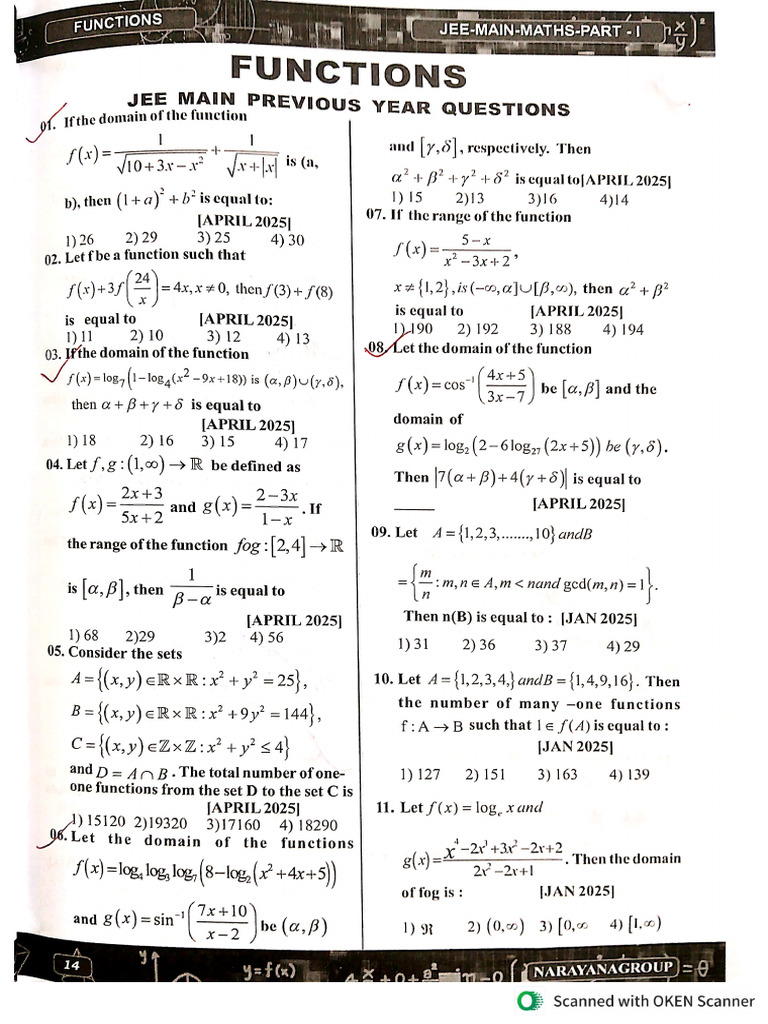 FUNCTIONS
JEE-MAIN-MATHS-PART - I
FUNCTIONS
JEE MAIN PREVIOUS YEAR QUESTIONS
01. If the domain of the function
f(x) = 1/√(10+3x−x²) + 1/√(x+|x|) is (a,
b), then (1+a)² + b² is equal to:
[APRIL 2025]
1) 26 2) 29 3) 25 4) 30
02. Let f be a function such that
f(x)+3f(24/x) = 4x, x ≠ 0, then f(3)+f(8)
is equal to [APRIL 2025]
1) 11 2) 10 3) 12 4) 13
03. If the domain of the function
f(x) = log₇(1−log₄(x²−9x+18)) is (α,β)∪(γ,δ),
then α+β+γ+δ is equal to
[APRIL 2025]
1) 18 2) 16 3) 15 4) 17
04. Let f,g:(1,∞)→ℝ be defined as
f(x) = (2x+3)/(5x+2) and g(x) = (2−3x)/(1−x). If
the range of the function fog:[2,4]→ℝ
is [α,β], then 1/(β−α) is equal to
[APRIL 2025]
1) 68 2)29 3)2 4) 56
05. Consider the sets
A={(x,y)∈ℝ×ℝ:x²+y²=25},
B={(x,y)∈ℝ×ℝ:x²+9y²=144},
C={(x,y)∈ℤ×ℤ:x²+y²≤4}
and D = A∩B. The total number of one-
one functions from the set D to the set C is
[APRIL 2025]
1) 15120 2)19320 3)17160 4) 18290
06. Let the domain of the functions
f(x)=log₄log₃log₇(8−log₂(x²+4x+5))
and g(x)=sin⁻¹((7x+10)/(x−2)) be (α,β)
and [γ,δ], respectively. Then
α²+β²+γ²+δ² is equal to[APRIL 2025]
1) 15 2)13 3)16 4)14
07. If the range of the function
f(x) = (5−x)/(x²−3x+2),
x≠{1,2}, is (−∞,α]∪[β,∞), then α²+β²
is equal to [APRIL 2025]
1) 190 2) 192 3) 188 4) 194
08. Let the domain of the function
f(x)=cos⁻¹((4x+5)/(3x−7)) be [α,β] and the
domain of
g(x)=log₂(2−6log₂₇(2x+5)) be (γ,δ).
Then |7(α+β)+4(γ+δ)| is equal to
______ [APRIL 2025]
09. Let A={1,2,3,.......,10} andB
={m/n : m,n∈A, m<nand gcd(m,n)=1}.
Then n(B) is equal to : [JAN 2025]
1) 31 2) 36 3) 37 4) 29
10. Let A={1,2,3,4,} andB={1,4,9,16}. Then
the number of many –one functions
f : A → B such that 1∈f(A) is equal to :
[JAN 2025]
1) 127 2) 151 3) 163 4) 139
11. Let f(x)=logₑ x and
g(x)=(x⁴−2x³+3x²−2x+2)/(2x²−2x+1). Then the domain
of fog is : [JAN 2025]
1) ℜ 2) (0,∞) 3) [0,∞ 4) [1,∞)
14
y
y=f(x)
NARAYANAGROUP
Scanned with OKEN Scanner